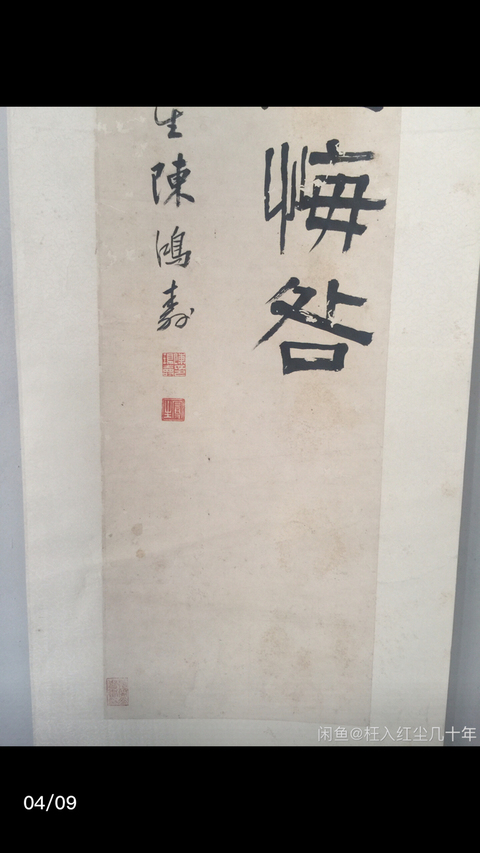 悔咎
生陳鴻壽
闲鱼@枉入红尘几十年
04/09